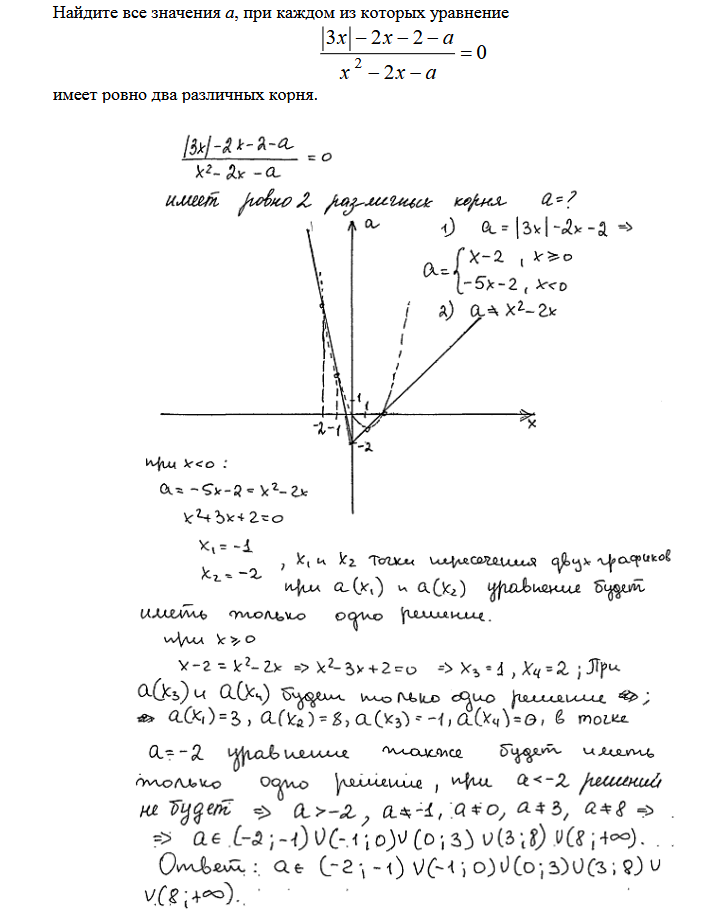 Найдите все значения a, при каждом из которых уравнение
|3x| − 2x − 2 − a
x² − 2x − a
= 0
имеет ровно два различных корня.
|3x|-2x-2-a
x²-2x-a
= 0
имеет ровно 2 различных корня a=?
a
1) a = |3x|-2x-2 ⇒
a = { x-2 , x ≥ 0
-5x-2 , x<0
2) a ≠ x²-2x
1
1
-2 -1
x
-2
при x<0 :
a = -5x-2 = x²-2x
x²+3x+2=0
x₁ = -1
x₂ = -2
, x₁ и x₂ точки пересечения двух графиков
при a(x₁) и a(x₂) уравнение будет
иметь только одно решение.
при x ≥ 0
x-2 = x²-2x ⇒ x²-3x+2=0 ⇒ x₃=1, x₄=2 ; При
a(x₃) и a(x₄) будет только одно решение ;
a(x₁)=3, a(x₂)=8, a(x₃)=-1, a(x₄)=0, в точке
a=-2 уравнение также будет иметь
только одно решение, при a<-2 решений
не будет ⇒ a>-2, a≠-1, a≠0, a≠3, a≠8 ⇒
⇒ a∈ (-2;-1)∪(-1;0)∪(0;3)∪(3;8)∪(8;+∞).
Ответ: a∈ (-2;-1)∪(-1;0)∪(0;3)∪(3;8)∪
∪(8;+∞).